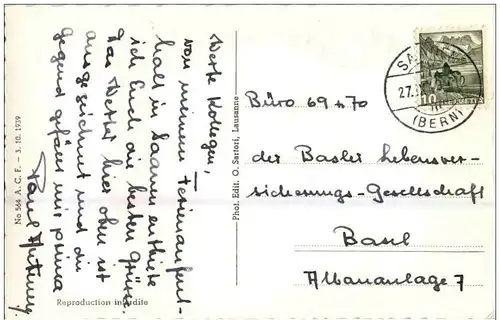 Werte Kollegen,
von meinem Ferienaufent-
halt in Saanen entbiete
ich Euch die besten Grüsse.
Das Wetter hier oben ist
ausgezeichnet und die
Gegend gefällt mir prima
Paul
Büro 69 & 70
der Basler Lebensver-
sicherungs-Gesellschaft
Basel
Albananlage 7
No 566 A. C. F. - 3. 10. 1939
Phot. Edit. O. Sartori, Lausanne
Reproduction interdite
10
HELVETIA
27.
(BERN)